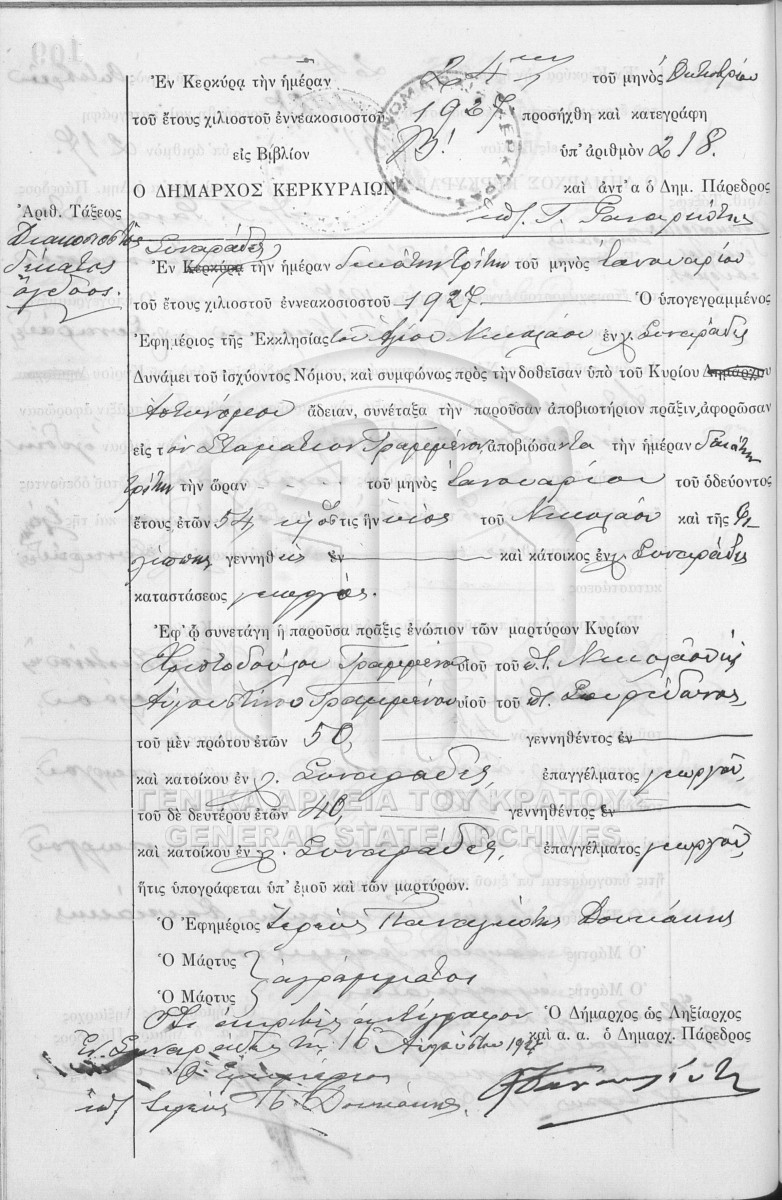 Ἐν Κερκύρᾳ τὴν ἡμέραν 24ην τοῦ μηνὸς Ὀκτωβρίου
τοῦ ἔτους χιλιοστοῦ ἐννεακοσιοστοῦ 1927 προσήχθη καὶ κατεγράφη
εἰς Βιβλίον Β! ὑπ' ἀριθμὸν 218.
Ο ΔΗΜΑΡΧΟΣ ΚΕΡΚΥΡΑΙΩΝ καὶ ἀντ'α ὁ Δημ. Πάρεδρος
Ἀριθ. Τάξεως
Διακοσιοστὸς
δέκατος
ὄγδοος.
Συναράδες
Ἐν Κερκύρᾳ τὴν ἡμέραν δεκάτην τρίτην τοῦ μηνὸς Ἰανουαρίου
τοῦ ἔτους χιλιοστοῦ ἐννεακοσιοστοῦ 1927 Ὁ ὑπογεγραμμένος
Ἐφημέριος τῆς Ἐκκλησίας τοῦ Ἁγίου Νικολάου ἐν χ. Συναράδες
Δυνάμει τοῦ ἰσχύοντος Νόμου, καὶ συμφώνως πρὸς τὴν δοθεῖσαν ὑπὸ τοῦ Κυρίου Δημάρχου
Ἀστυνόμου ἄδειαν, συνέταξα τὴν παροῦσαν ἀποβιωτήριον πρᾶξιν, ἀφορῶσαν
εἰς τὸν Σταμάτιον Γραμμένον, ἀποβιώσαντα τὴν ἡμέραν δεκάτην
τρίτην τὴν ὥραν τοῦ μηνὸς Ἰανουαρίου τοῦ ὁδεύοντος
ἔτους ἐτῶν 54 ὅστις ἦν υἱὸς τοῦ Νικολάου καὶ τῆς Φι
λίππης γεννηθεὶς ἐν καὶ κάτοικος ἐν χ. Συναράδες
καταστάσεως γεωργός.
Ἐφ' ᾧ συνετάγη ἡ παροῦσα πρᾶξις ἐνώπιον τῶν μαρτύρων Κυρίων
Χριστοδούλου Γραμμένου υἱοῦ τοῦ π. Νικολάου καὶ
Αὐγουστίνου Γραμμένου υἱοῦ τοῦ π. Σπυρίδωνος,
τοῦ μὲν πρώτου ἐτῶν 50, γεννηθέντος ἐν
καὶ κατοίκου ἐν χ. Συναράδες, ἐπαγγέλματος γεωργοῦ,
ΓΕΝΙΚΑ ΑΡΧΕΙΑ ΤΟΥ ΚΡΑΤΟΥΣ
τοῦ δὲ δευτέρου ἐτῶν 40, γεννηθέντος ἐν
GENERAL STATE ARCHIVES
καὶ κατοίκου ἐν χ. Συναράδες, ἐπαγγέλματος γεωργοῦ,
ἥτις ὑπογράφεται ὑπ' ἐμοῦ καὶ τῶν μαρτύρων.
Ὁ Ἐφημέριος Ἱερεὺς Παναγιώτης Δουκάκης
Ὁ Μάρτυς
ἀγράμματοι
Ὁ Μάρτυς
Ὅτι ἀκριβὲς ἀντίγραφον
Ὁ Δήμαρχος ὡς Ληξίαρχος
Ἐν Συναράδες τῇ 16 Αὐγούστου 1927
καὶ α. α. ὁ Δημαρχ. Πάρεδρος
Ὁ Ἐφημέριος
Ἱερεὺς Π. Δουκάκης